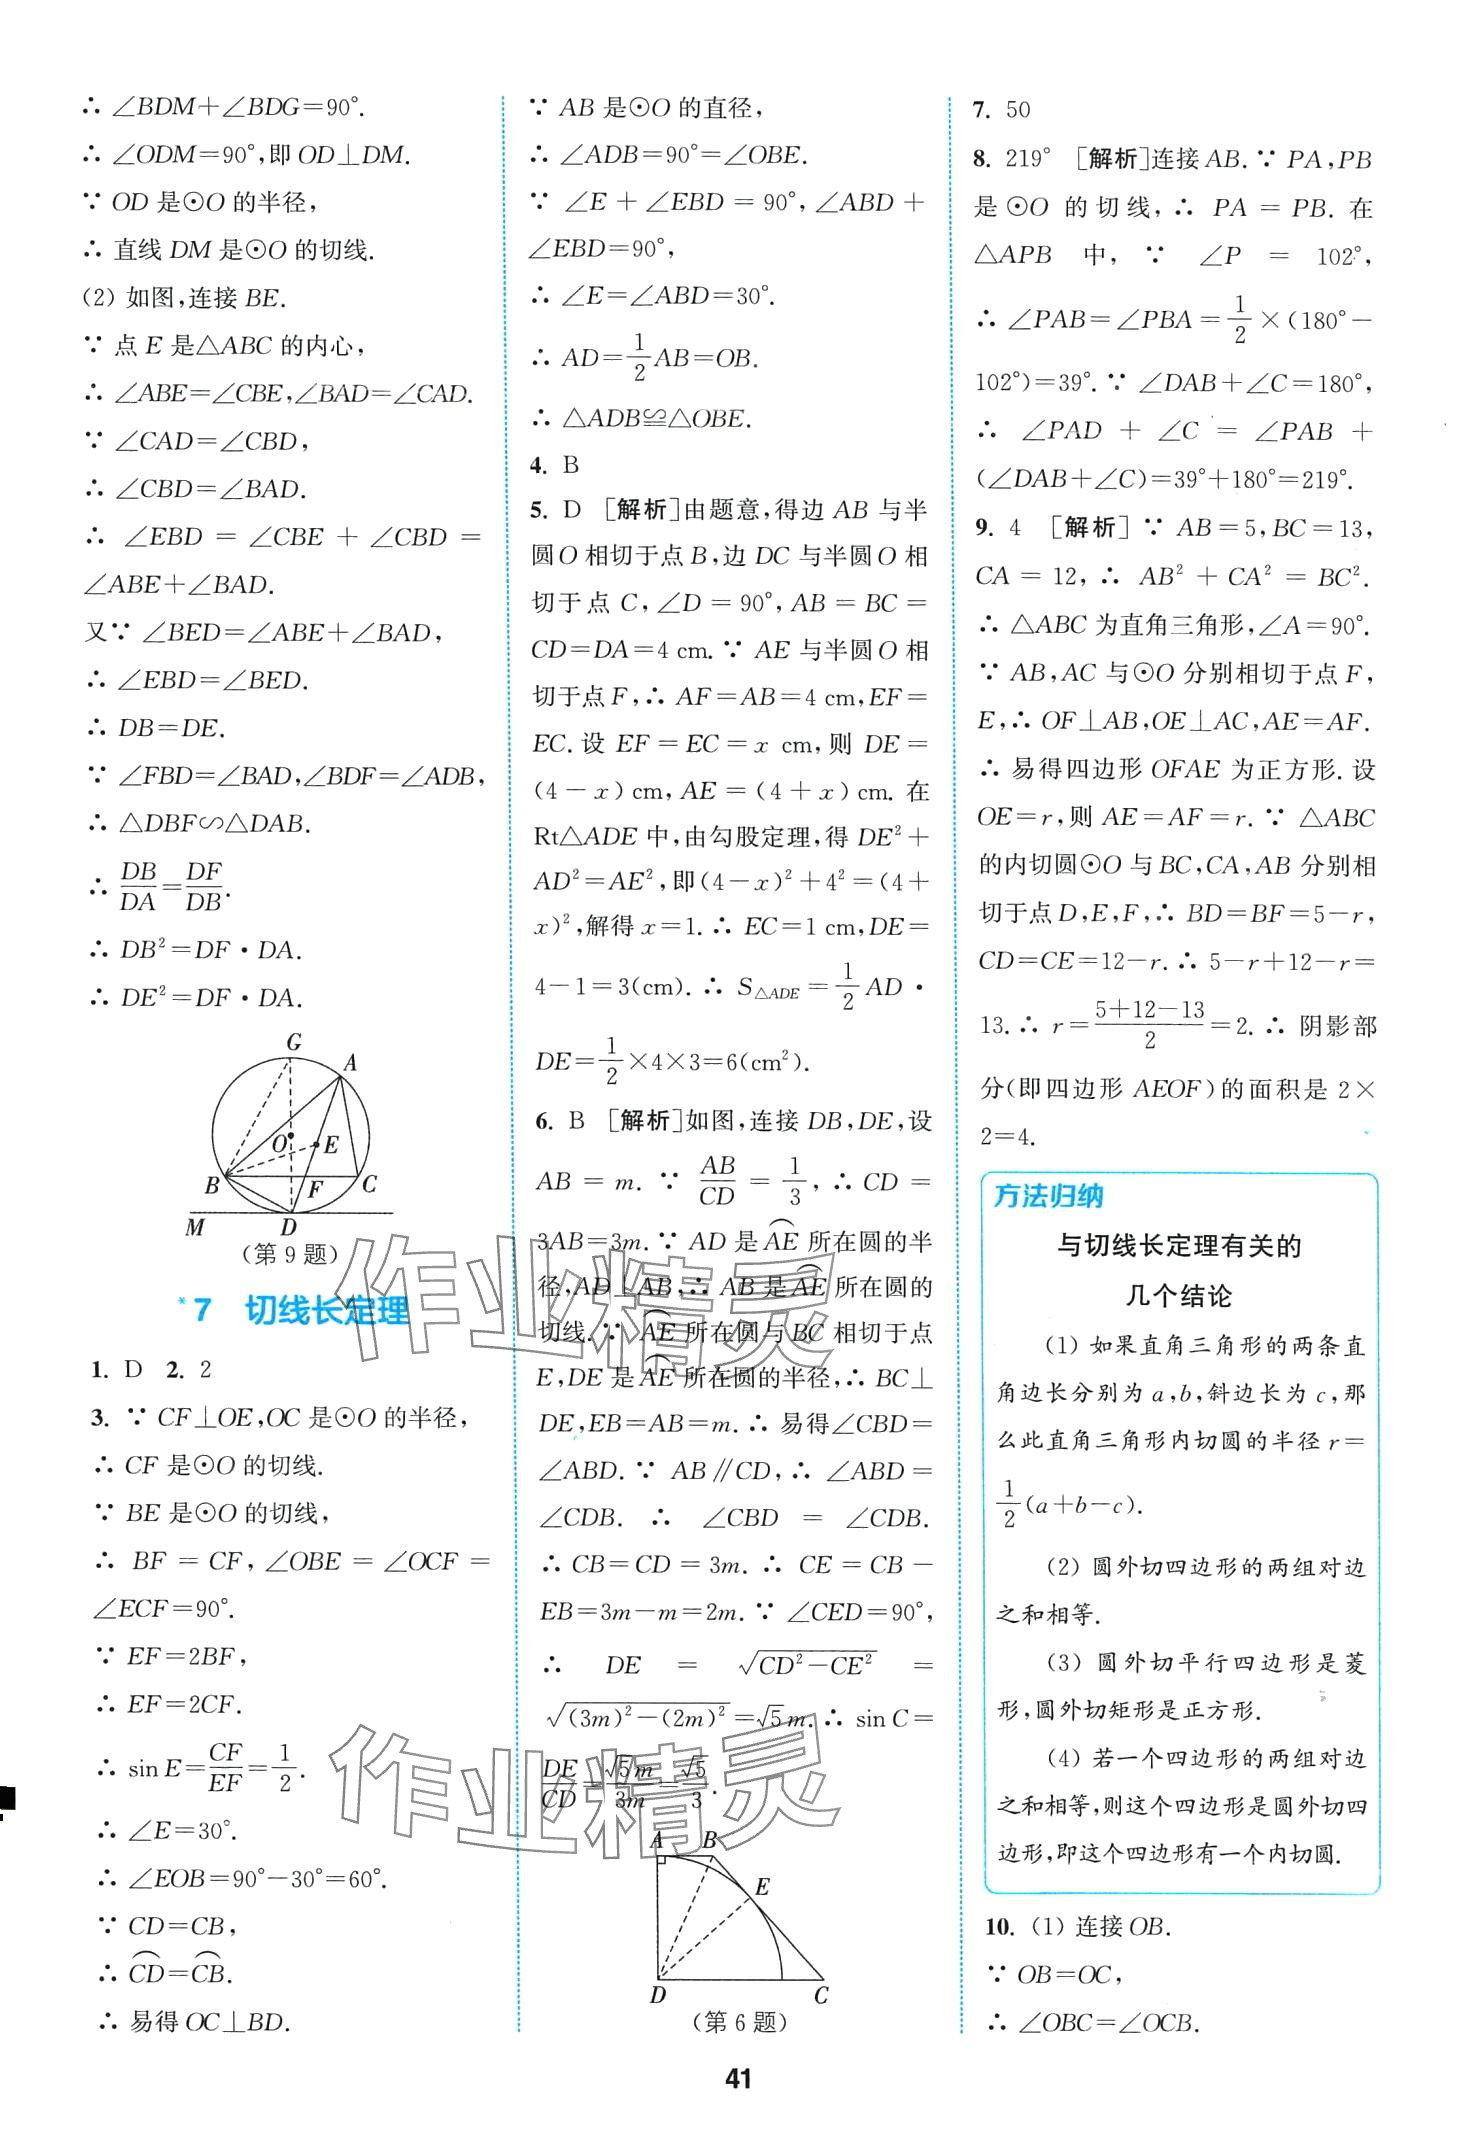 ∴ ∠BDM+∠BDG=90°.
∴ ∠ODM=90°,即 OD⊥DM.
∵ OD 是⊙O 的半径,
∴ 直线 DM 是⊙O 的切线.
(2) 如图,连接 BE.
∵ 点 E 是△ABC 的内心,
∴ ∠ABE=∠CBE,∠BAD=∠CAD.
∵ ∠CAD=∠CBD,
∴ ∠CBD=∠BAD.
∴ ∠EBD = ∠CBE + ∠CBD =
∠ABE+∠BAD.
又∵ ∠BED=∠ABE+∠BAD,
∴ ∠EBD=∠BED.
∴ DB=DE.
∵ ∠FBD=∠BAD,∠BDF=∠ADB,
∴ △DBF∽△DAB.
∴ DB/DA=DF/DB.
∴ DB²=DF·DA.
∴ DE²=DF·DA.
G
A
O
E
B
F
C
M
D
(第 9 题)
*7 切线长定理
1. D 2. 2
3. ∵ CF⊥OE,OC 是⊙O 的半径,
∴ CF 是⊙O 的切线.
∵ BE 是⊙O 的切线,
∴ BF = CF, ∠OBE = ∠OCF =
∠ECF=90°.
∵ EF=2BF,
∴ EF=2CF.
∴ sin E=CF/EF=1/2.
∴ ∠E=30°.
∴ ∠EOB=90°-30°=60°.
∵ CD=CB,
∴ ⌒CD=⌒CB.
∴ 易得 OC⊥BD.
∵ AB 是⊙O 的直径,
∴ ∠ADB=90°=∠OBE.
∵ ∠E + ∠EBD = 90°, ∠ABD +
∠EBD=90°,
∴ ∠E=∠ABD=30°.
∴ AD=1/2AB=OB.
∴ △ADB≌△OBE.
4. B
5. D [解析]由题意,得边 AB 与半
圆 O 相切于点 B,边 DC 与半圆 O 相
切于点 C,∠D = 90°, AB = BC =
CD=DA=4 cm. ∵ AE 与半圆 O 相
切于点 F,∴ AF=AB=4 cm,EF=
EC. 设 EF = EC = x cm,则 DE =
(4-x) cm, AE = (4+x) cm. 在
Rt△ADE 中,由勾股定理,得 DE²+
AD²=AE²,即(4-x)²+4²=(4+
x)²,解得 x=1. ∴ EC=1 cm,DE=
4-1=3(cm). ∴ S△ADE=1/2 AD·
DE=1/2×4×3=6(cm²).
6. B [解析]如图,连接 DB,DE,设
AB = m. ∵ AB/CD = 1/3, ∴ CD =
3AB=3m. ∵ AD 是⌒AE 所在圆的半
径,AD⊥AB,∴ AB 是⌒AE 所在圆的
切线. ∵ ⌒AE 所在圆与 BC 相切于点
E,DE 是⌒AE 所在圆的半径,∴ BC⊥
DE,EB=AB=m. ∴ 易得∠CBD=
∠ABD. ∵ AB∥CD, ∴ ∠ABD =
∠CDB. ∴ ∠CBD = ∠CDB.
∴ CB=CD=3m. ∴ CE=CB-
EB=3m-m=2m. ∵ ∠CED=90°,
∴ DE = √(CD²-CE²) =
√((3m)²-(2m)²)=√5m. ∴ sin C=
DE/CD=√5m/3m=√5/3.
A
B
E
D
C
(第 6 题)
7. 50
8. 219° [解析]连接 AB. ∵ PA,PB
是⊙O 的切线, ∴ PA = PB. 在
△APB 中, ∵ ∠P = 102°,
∴ ∠PAB=∠PBA=1/2×(180°-
102°)=39°. ∵ ∠DAB+∠C=180°,
∴ ∠PAD + ∠C = ∠PAB +
(∠DAB+∠C)=39°+180°=219°.
9. 4 [解析] ∵ AB=5,BC=13,
CA = 12, ∴ AB² + CA² = BC².
∴ △ABC 为直角三角形,∠A=90°.
∵ AB,AC 与⊙O 分别相切于点 F,
E,∴ OF⊥AB,OE⊥AC,AE=AF.
∴ 易得四边形 OFAE 为正方形. 设
OE=r,则 AE=AF=r. ∵ △ABC
的内切圆⊙O 与 BC,CA,AB 分别相
切于点 D,E,F,∴ BD=BF=5-r,
CD=CE=12-r. ∴ 5-r+12-r=
13. ∴ r=(5+12-13)/2=2. ∴ 阴影部
分(即四边形 AEOF)的面积是 2×
2=4.
方法归纳
与切线长定理有关的
几个结论
(1) 如果直角三角形的两条直
角边长分别为 a,b,斜边长为 c,那
么此直角三角形内切圆的半径 r=
1/2(a+b-c).
(2) 圆外切四边形的两组对边
之和相等.
(3) 圆外切平行四边形是菱
形,圆外切矩形是正方形.
(4) 若一个四边形的两组对边
之和相等,则这个四边形是圆外切四
边形,即这个四边形有一个内切圆.
10. (1) 连接 OB.
∵ OB=OC,
∴ ∠OBC=∠OCB.
作业精灵
作业精灵
41